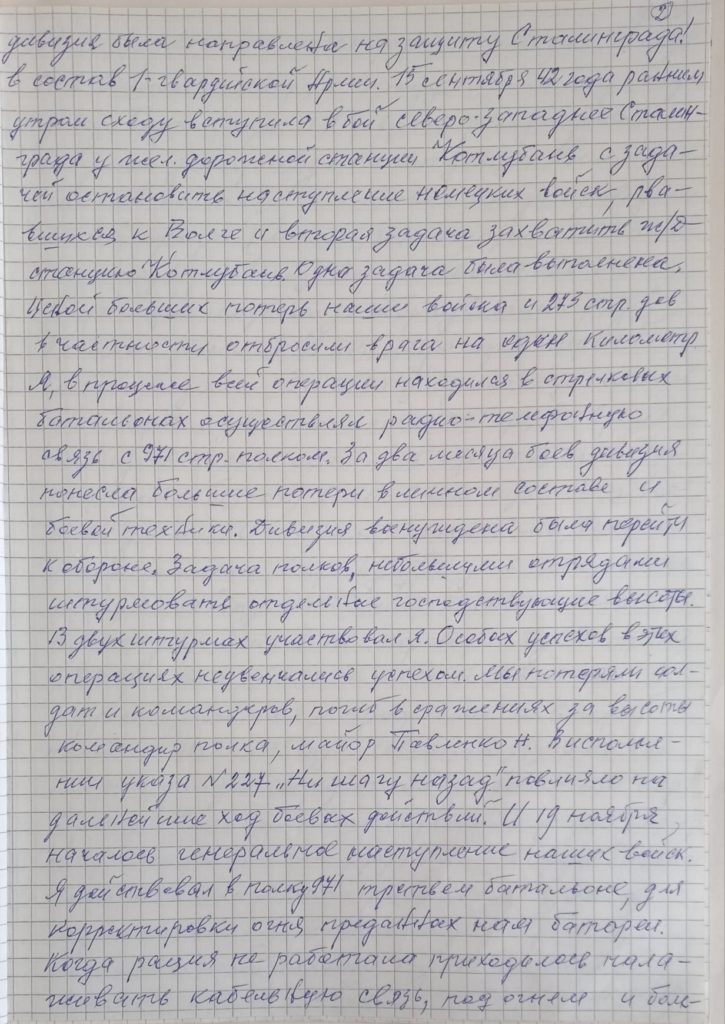 2
дивизия была направлена на защиту Сталинграда!
в состав 1-гвардийской Армии. 15 сентября 42 года ранним
утром сходу вступила в бой северо-западнее Сталин-
града у жел. дорожной станции "Котлубань с зада-
чей остановить наступление немецких войск, рва-
вшихся к Волге и вторая задача захватить ж/д
станцию "Котлубань. Одна задача была выполнена.
Ценой больших потерь наши войска и 273 стр. див
в частности отбросили врага на один километр
Я, в процессе всей операции находился в стрелковых
батальонах осуществлял радио-телефонную
связь с 971 стр. полком. За два месяца боев дивизия
понесла большие потери в личном составе и
боевой техники. Дивизия вынуждена была перейти
к обороне. Задача полков, небольшими отрядами
штурмовать отдельные господствующие высоты.
В двух штурмах участвовал я. Особых успехов в этих
операциях неувенчались успехом. Мы потеряли сол-
дат и командиров, погиб в сражениях за высоты
командир полка, майор Павленко Н. В исполне-
нии указа №227 "Ни шагу назад" повлияло на
дальнейшие ход боевых действий. И 19 ноября
началось генеральное наступление наших войск.
Я действовал в полку 971 третьем батальоне, для
корректировки огня преданных нам батареи.
Когда рация не работала приходилось нала-
живать кабельную связь, под огнем и